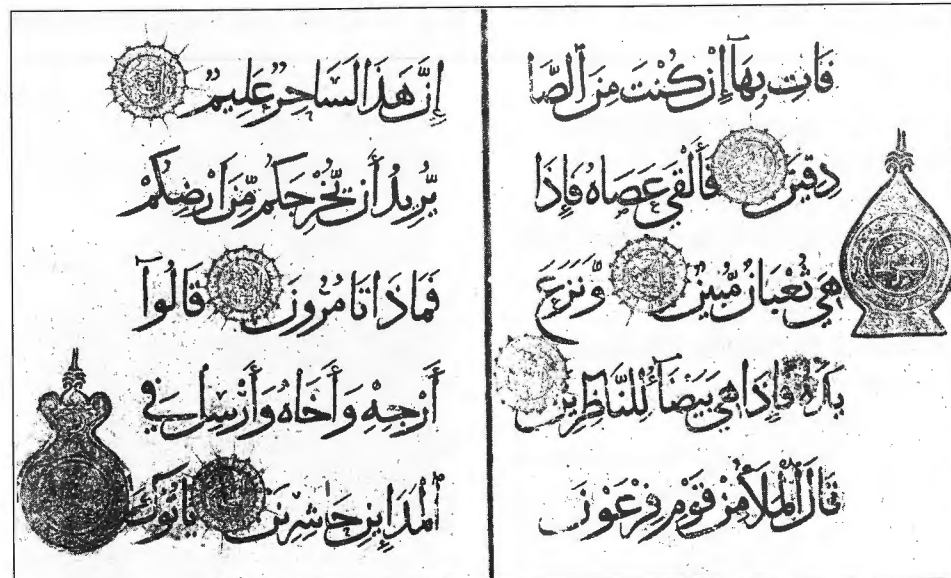 فَاتِ بِهَآ إِنْ كُنْتَ مِنَ الصَّا
دِقِينَ فَأَلْقَىٰ عَصَاهُ فَإِذَا
هِيَ ثُعْبَانٌ مُّبِينٌ وَّنَزَعَ
يَدَهُ فَإِذَا هِيَ بَيْضَآءُ لِلنَّاظِرِينَ
قَالَ الْمَلَأُ مِنْ قَوْمِ فِرْعَوْنَ
إِنَّ هَذَا لَسَاحِرٌ عَلِيمٌ
يُّرِيدُ أَن يُّخْرِجَكُم مِّنَ أَرْضِكُمْ
فَمَاذَا تَامُرُونَ قَالُوٓا
أَرْجِهْ وَأَخَاهُ وَأَرْسِلْ فِي
الْمَدَآئِنِ حَاشِرِينَ يَاتُوكَ